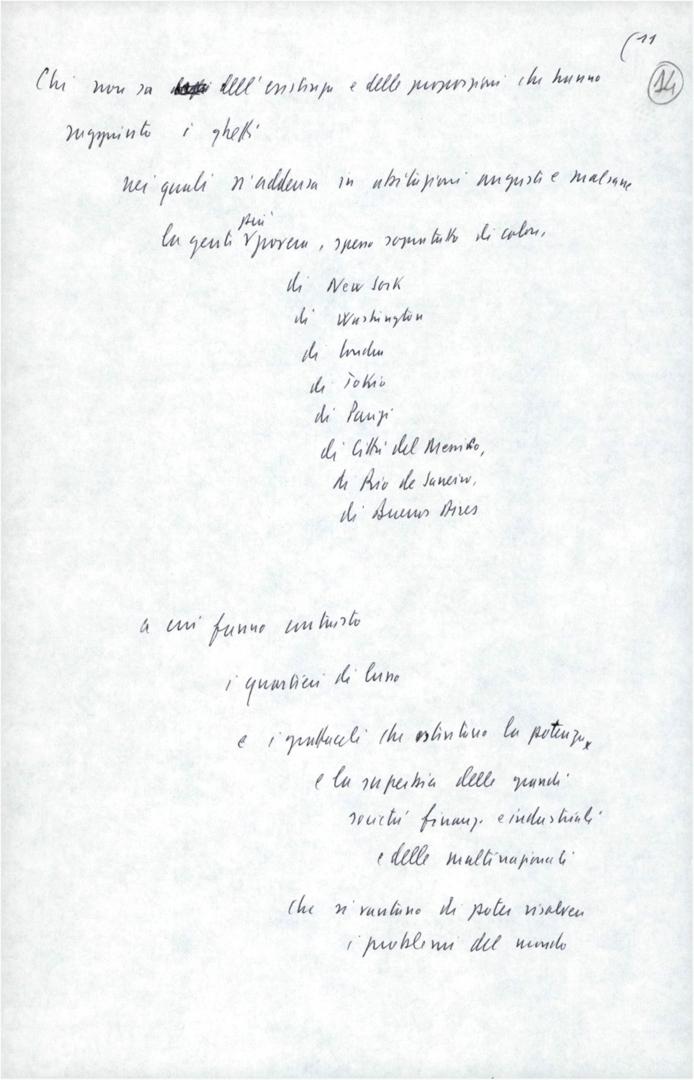 (11
14
Chi non sa dell'esistenza e delle proporzioni che hanno
raggiunto i ghetti
nei quali s'addensa in abitazioni anguste e malsane
la gente più povera, spesso soprattutto di colore,
di New York
di Washington
di Londra
di Tokio
di Parigi
di Città del Messico,
di Rio de Janeiro,
di Buenos Aires
a cui fanno contrasto
i quartieri di lusso
e i grattacieli che ostentano la potenza
e la superbia delle grandi
società finanz. e industriali
e delle multinazionali
che si vantano di poter risolvere
i problemi del mondo